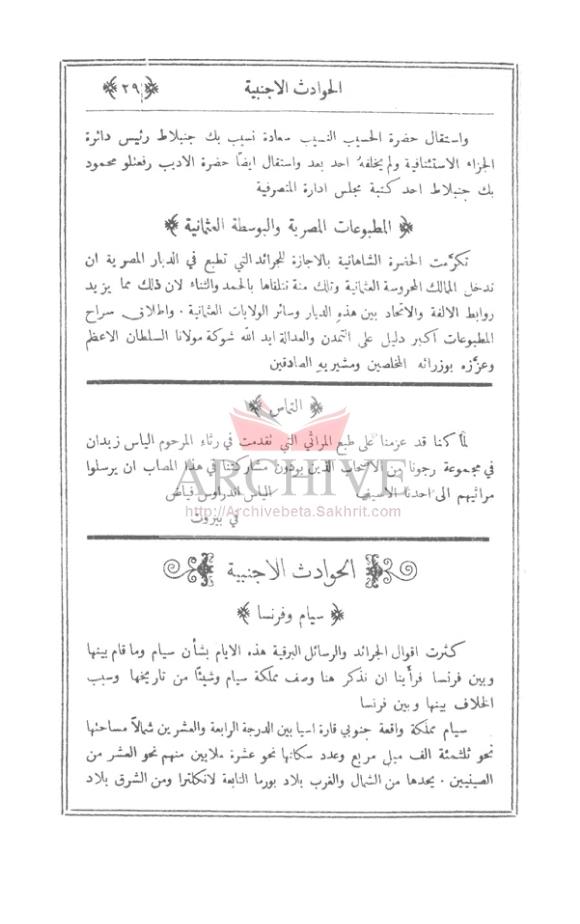 الحوادث الاجنبية
٢٩
واستقال حضرة الحسيب النسيب سعادة نسيب بك جنبلاط رئيس دائرة
الجزاء الاستئنافية ولم يخلفهُ احد بعد واستقال ايضًا حضرة الاديب رفعتلو محمود
بك جنبلاط احد كتبة مجلس ادارة المتصرفية
المطبوعات المصرية والبوسطة العثمانية
تكرَّمت الحضرة الشاهانية بالاجازة للجرائد التي تطبع في الديار المصرية ان
تدخل الممالك المحروسة العثمانية وتلك منة نتلقاها بالحمد والثناء لان ذلك مما يزيد
روابط الالفة والاتحاد بين هذهِ الديار وسائر الولايات العثمانية . واطلاق سراح
المطبوعات اكبر دليل على التمدن والعدالة ايد الله شوكة مولانا السلطان الاعظم
وعزَّزه بوزرائه المخلصين ومشيريهِ الصادقين
التماس
لما كنا قد عزمنا على طبع المراثي التي تقدمت في رثاء المرحوم الياس زيدان
في مجموعة رجونا من الاصحاب الذين يودون مشاركتنا في هذا المصاب ان يرسلوا
مراثيهم الى احدنا الاسيف
الياس الدراوس فياض
في بيروت
ARCHIVE
http://Archivebeta.Sakhrit.com
الحوادث الاجنبية
سيام وفرنسا
كثرت اقوال الجرائد والرسائل البرقية هذه الايام بشأن سيام وما قام بينها
وبين فرنسا فرأينا ان نذكر هنا وصف مملكة سيام وشيئًا من تاريخها وسبب
الخلاف بينها وبين فرنسا
سيام مملكة واقعة جنوبي قارة اسيا بين الدرجة الرابعة والعشرين شمالاً مساحتها
نحو ثلثمئة الف ميل مربع وعدد سكانها نحو عشرة ملايين منهم نحو العشر من
الصينيين . يحدها من الشمال والغرب بلاد بورما التابعة لانكلترا ومن الشرق بلاد